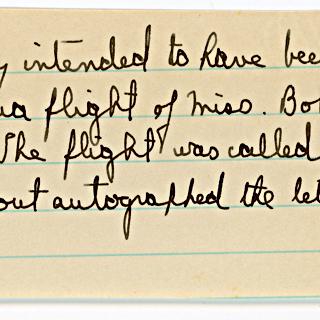 y intended to have bee
ua flight of Miss. Bo
The flight was called
out autographed the let